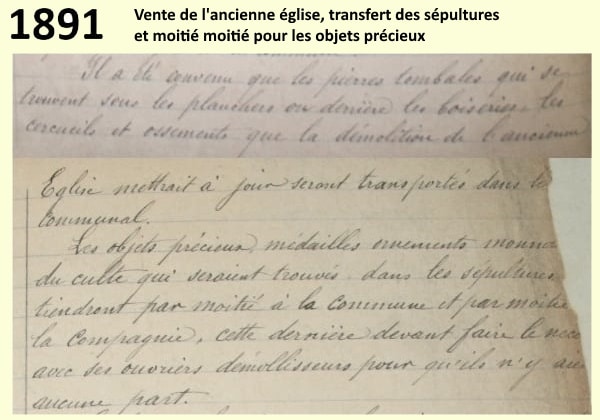 1891
Vente de l'ancienne église, transfert des sépultures
et moitié moitié pour les objets précieux
Il a été convenu que les pierres tombales qui se
trouvent sous les planchers ou derrière les boiseries, les
cercueils et ossements que la démolition de l'ancienne
Eglise mettrait à jour seront transportés dans le
communal.
Les objets précieux, médailles ornements monna
du culte qui seraient trouvés dans les sépultures
tiendront par moitié à la Commune et par moitié
la Compagnie, cette dernière devant faire le nece
avec ses ouvriers démollisseurs pour qu'ils n'y aie
aucune part.